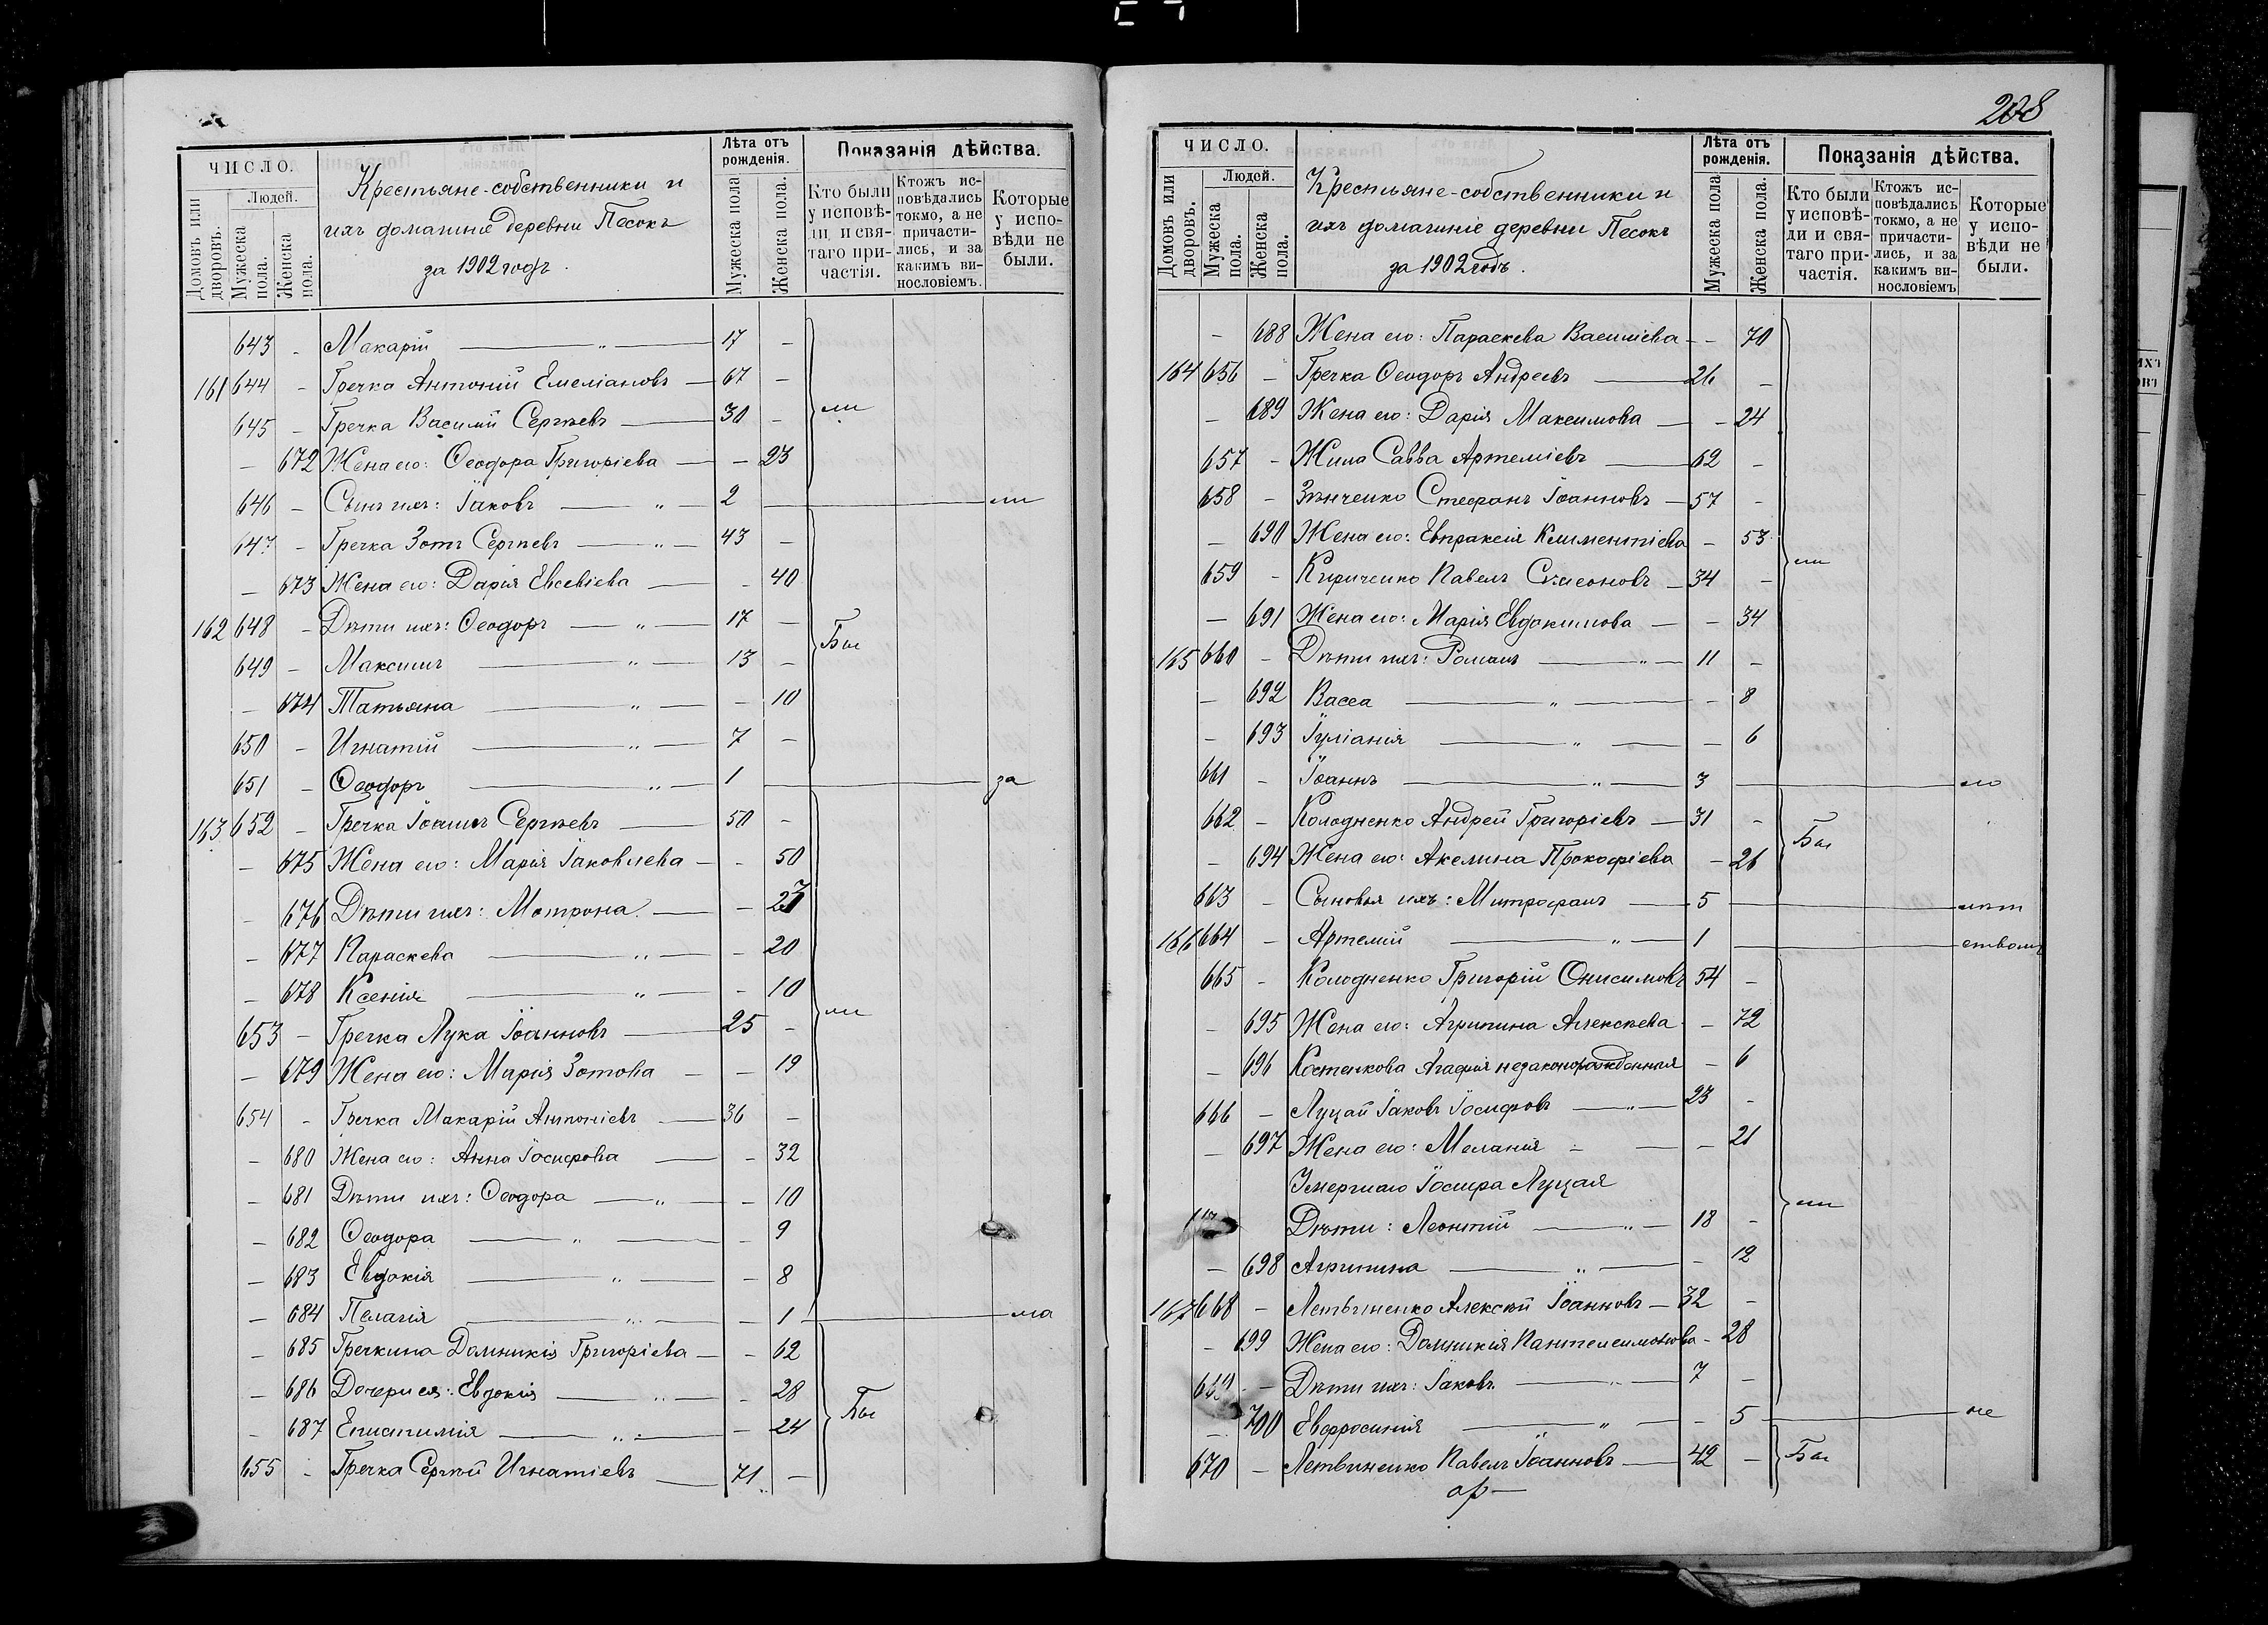 ЧИСЛО.
Людей.
Домовъ или дворовъ.
Мужеска пола.
Женска пола.
Крестьяне-собственники и
ихъ домашніе деревни Песокъ
за 1902 годъ.
Лѣта отъ рожденія.
Мужеска пола
Женска пола.
Показанія дѣйства.
Кто были у исповѣди и святаго причастія.
Ктожъ исповѣдались токмо, а не причастились, и за какимъ винословіемъ.
Которые у исповѣди не были.
643 - Макарій — " — 17 -
161 644 - Гречка Антоній Емеліановъ — 67 -
645 - Гречка Василій Сергѣевъ — 30 - ли
- 672 Жена его: Ѳеодора Григоріева — - 23
646 - Сынъ ихъ: Іаковъ — " — 2 — ли
647 - Гречка Зотъ Сергѣевъ — " — 43 -
- 673 Жена его: Дарія Евсевіева — - 40
162 648 - Дѣти ихъ: Ѳеодоръ — " — 17 - Бы
649 - Максимъ — " — 13 -
- 674 Татьяна — " — - 10
650 - Игнатій — " — 7 -
651 - Ѳеодоръ — " — 1 — за
163 652 - Гречка Іоаннъ Сергѣевъ — 50 -
- 675 Жена его: Марія Іаковлева — - 50
- 676 Дѣти ихъ: Мотрона — - 27
- 677 Параскева — " — - 20
- 678 Ксенія — " — - 10
653 - Гречка Лука Іоанновъ — 25 - ли
- 679 Жена его: Марія Зотова — - 19
654 - Гречка Макарій Антоніевъ — 36 -
- 680 Жена его: Анна Іосифова — - 32
- 681 Дѣти ихъ: Ѳеодора — " — - 10
- 682 Ѳеодора — " — - 9
- 683 Евдокія — " — - 8
- 684 Пелагія — " — - 1 — ма
- 685 Гречкина Домникія Григоріева — - 62
- 686 Дочери ея: Евдокія — " — - 28
- 687 Епистимія — " — - 24 Бы
655 - Гречка Сергѣй Игнатіевъ — 71 -
208
ЧИСЛО.
Людей.
Домовъ или дворовъ.
Мужеска пола.
Женска пола.
Крестьяне-собственники и
ихъ домашніе деревни Песокъ
за 1902 годъ.
Лѣта отъ рожденія.
Мужеска пола
Женска пола.
Показанія дѣйства.
Кто были у исповѣди и святаго причастія.
Ктожъ исповѣдались токмо, а не причастились, и за какимъ винословіемъ
Которые у исповѣди не были.
- 688 Жена его: Параскева Василіева - - 70
164 656 - Гречка Ѳеодоръ Андреевъ — 26 -
- 689 Жена его: Дарія Максимова — - 24
657 - Жила Савва Артеміевъ — 62 -
658 - Зѣнченко Стефанъ Іоанновъ — 57 -
- 690 Жена его: Евпраксія Климентіева - 53
659 - Кириченко Павелъ Симеоновъ — 34 - ли
- 691 Жена его: Марія Евдокимова — - 34
165 660 - Дѣти ихъ: Романъ — " — 11 -
- 692 Васса — " — - 8
- 693 Іуліанія — " — - 6
661 - Іоаннъ — " — 3 — ло
662 - Колодненко Андрей Григоріевъ — 31 -
- 694 Жена его: Акелина Прокофіева - 26 Бы
663 - Сыновья ихъ: Митрофанъ — 5 — лѣт
166 664 - Артемій — " — 1 — ствомъ
665 - Колодненко Григорій Онисимовъ 54 -
- 695 Жена его: Агрипина Алексѣева - 72
- 696 Костенкова Агафія незаконорожденная - 6
666 - Луцай Іаковъ Іосифовъ — " — 23 -
- 697 Жена его: Меланія - — - 21
Умершаго Іосифа Луцая
Дѣти: Леонтій — " — 18 - ли
- 698 Агрипина — " — - 12
167 668 - Летвиненко Алексѣй Іоанновъ — 32 -
- 699 Жена его: Домникія Пантелеимонова - 28
669 - Дѣти ихъ: Іаковъ — " — 7 -
- 700 Евфросинія — " — - 5 — не
670 - Летвиненко Павелъ Іоанновъ — 42 - Бы